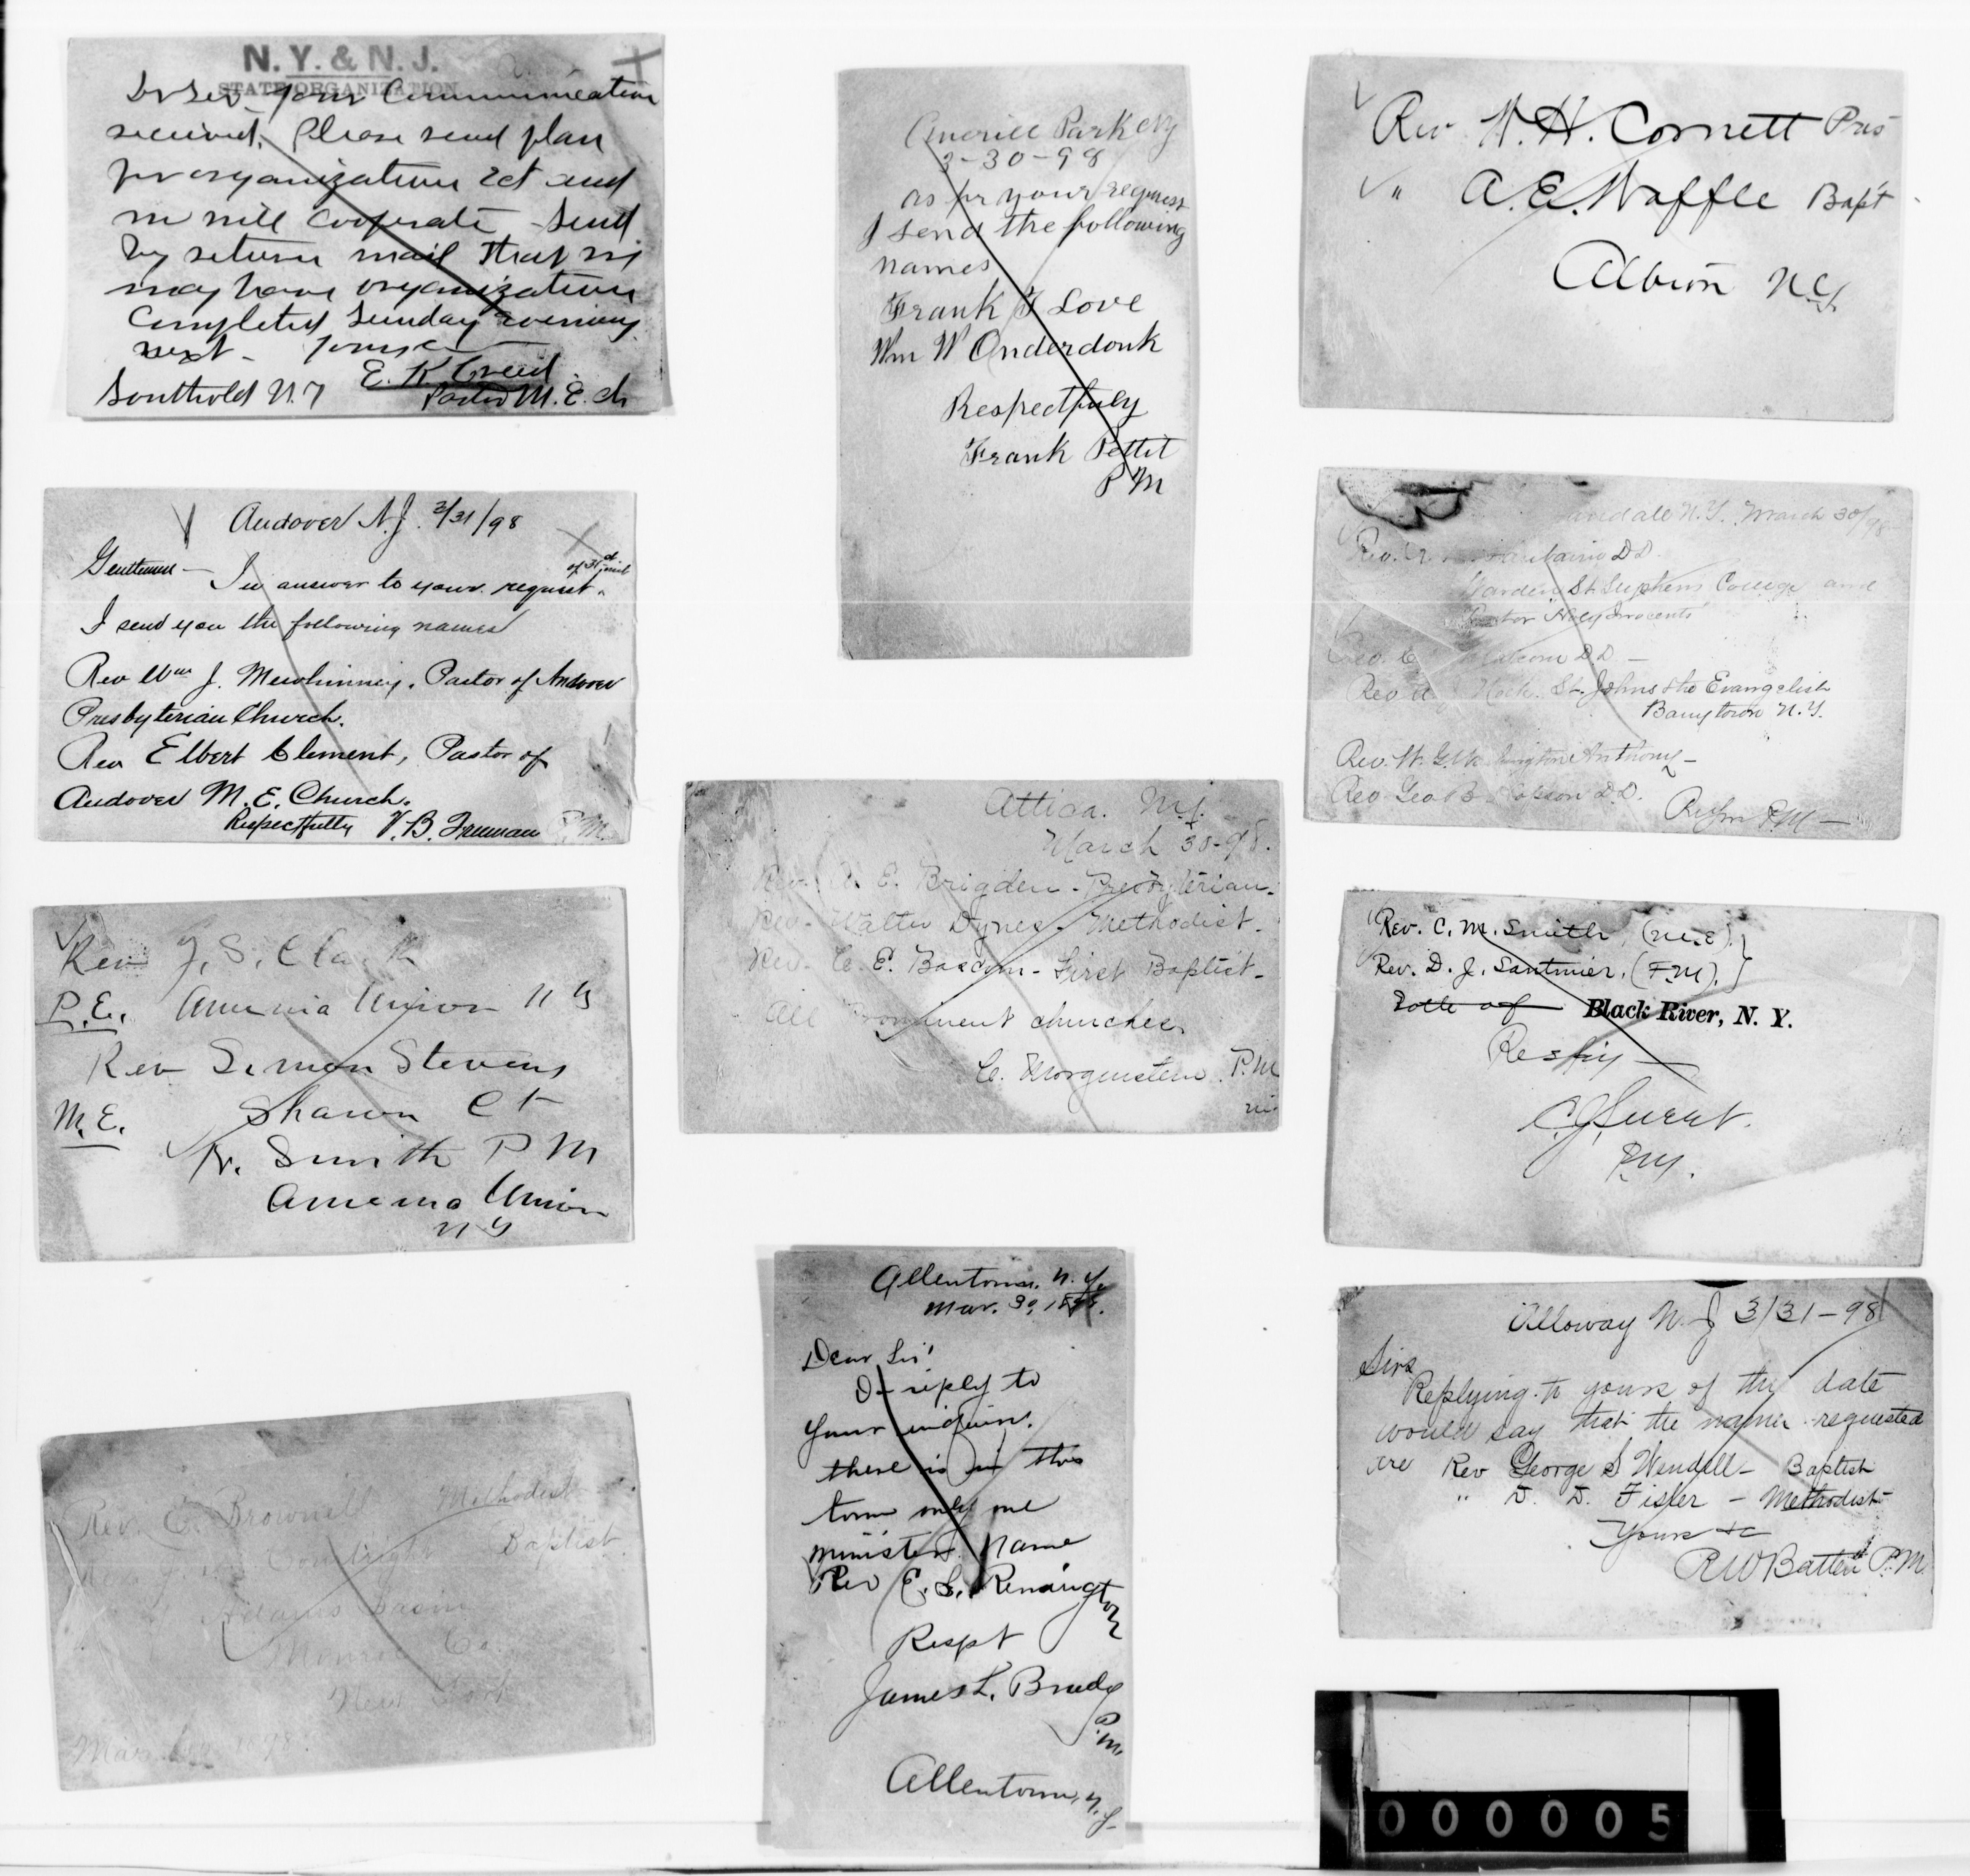 N. Y. & N. J.
STATE ORGANIZATION
Dr Sir your Communication
received. Please send plan
for organization &ct and
we will cooperate - Send
by return mail that we
may have organization
completed Sunday evening
next - Yours &c
E. K. Creed
Southold N.Y Pastor M. E. ch
Andover N.J. 3/31/98
Gentlemen - In answer to your request
I send you the following names
Rev Wm J. Mewhinney, Pastor of Andover
Presbyterian Church.
Rev Elbert Clement, Pastor of
Andover M. E. Church.
Respectfully V. B. Freeman P.M.
Rev J. S. Clark
P.E. Amenia Union N Y
Rev Simon Stevens
M.E. Sharon Ct
Smith P M
Amenia Union
N Y
Rev. E. Brownell Methodist
Rev. Baptist
Adams Basin
Monroe Co.
New York
Park NY
3-30-98
as pr your request
I send the following
names
Frank Love
Wm W Onderdonk
Respectfuly
Frank Pettit
P M
Attica. N.Y.
March 30-98.
Rev. A. E. Brigden - Presbyterian.
Rev. Walter Dynes - Methodist.
Rev. C. E. Bascom - First Baptist -
All Prominent churches.
C. Morgenstern. P.M
Allentown. N. Y.
Mar. 30, 1898.
Dear Sir!
In reply to
your inquiry.
there is in this
town only one
minister. Name
Rev E. L. Remington
Respt
James L. Brady
P.M.
Allentown, N.Y.
Rev W. H. Cornett Pres
" A. E. Waffle Bapt
Albion N.Y.
Annandale N.Y. March 30/98
Rev. D.D.
Warden St Stephens College and
Pastor Holy Innocents
Rev. D.D -
Rev A. St. Johns the Evangelist
Barrytown N.Y.
Rev. W. G. Washington Anthony -
Rev Geo B. D.D.
P.M -
Rev. C. M. Smith, (M.E.)
Rev. D. J. Santmier, (F.M).
Both of Black River, N. Y.
Resp'y
P.M.
Alloway N. J 3/31-98
Sirs
Replying to yours of thy date
would say that the names requested
are Rev George S Wendell - Baptist
" D. D. Fisler - Methodist
Yours &c
R W Batten P.M.
000005